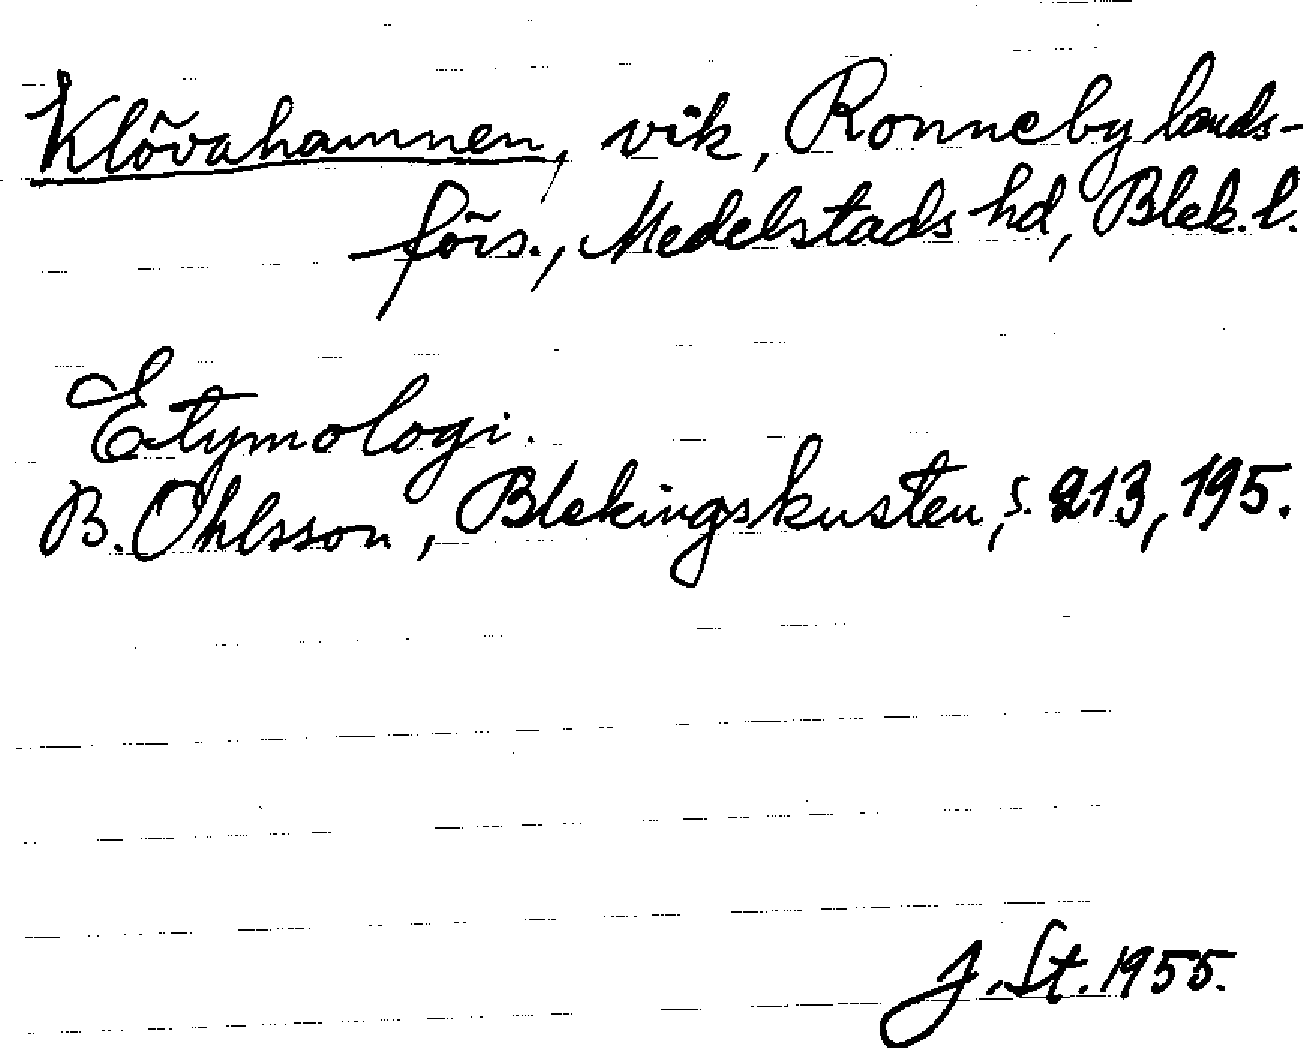 Klövahamnen, vik, Ronneby lands-
förs., Medelstads hd, Blek. l.
Etymologi.
B. Ohlsson, Blekingskusten, s. 213, 195.
J. St. 1955.